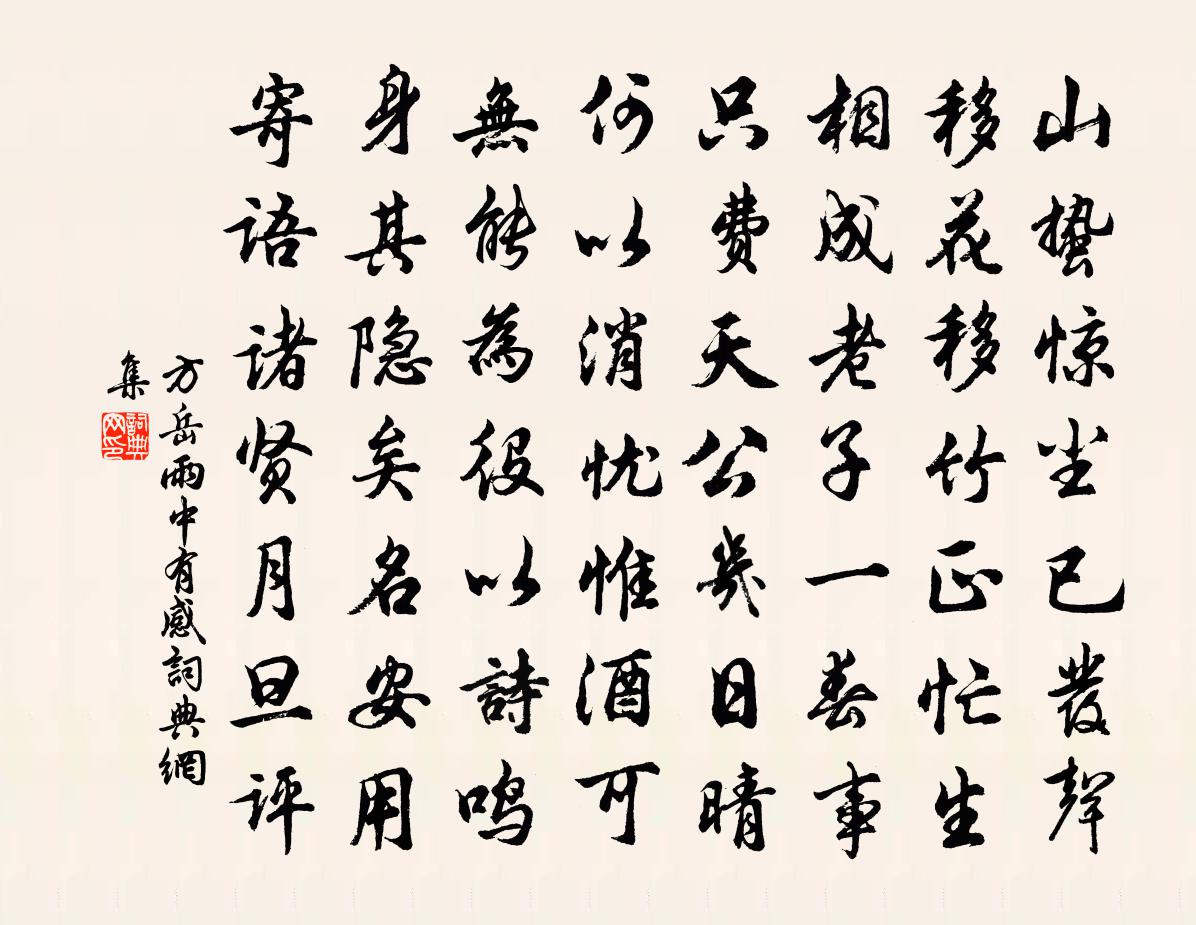 山蛰惊尘已發聲
移花移竹正忙生
相成老子一春事
只费天公幾日晴
何以消忧惟酒可
無能為役以詩鸣
身其隐矣名安用
寄语诸贤月旦评
方岳雨中有感詞典網
集
詞典
网印